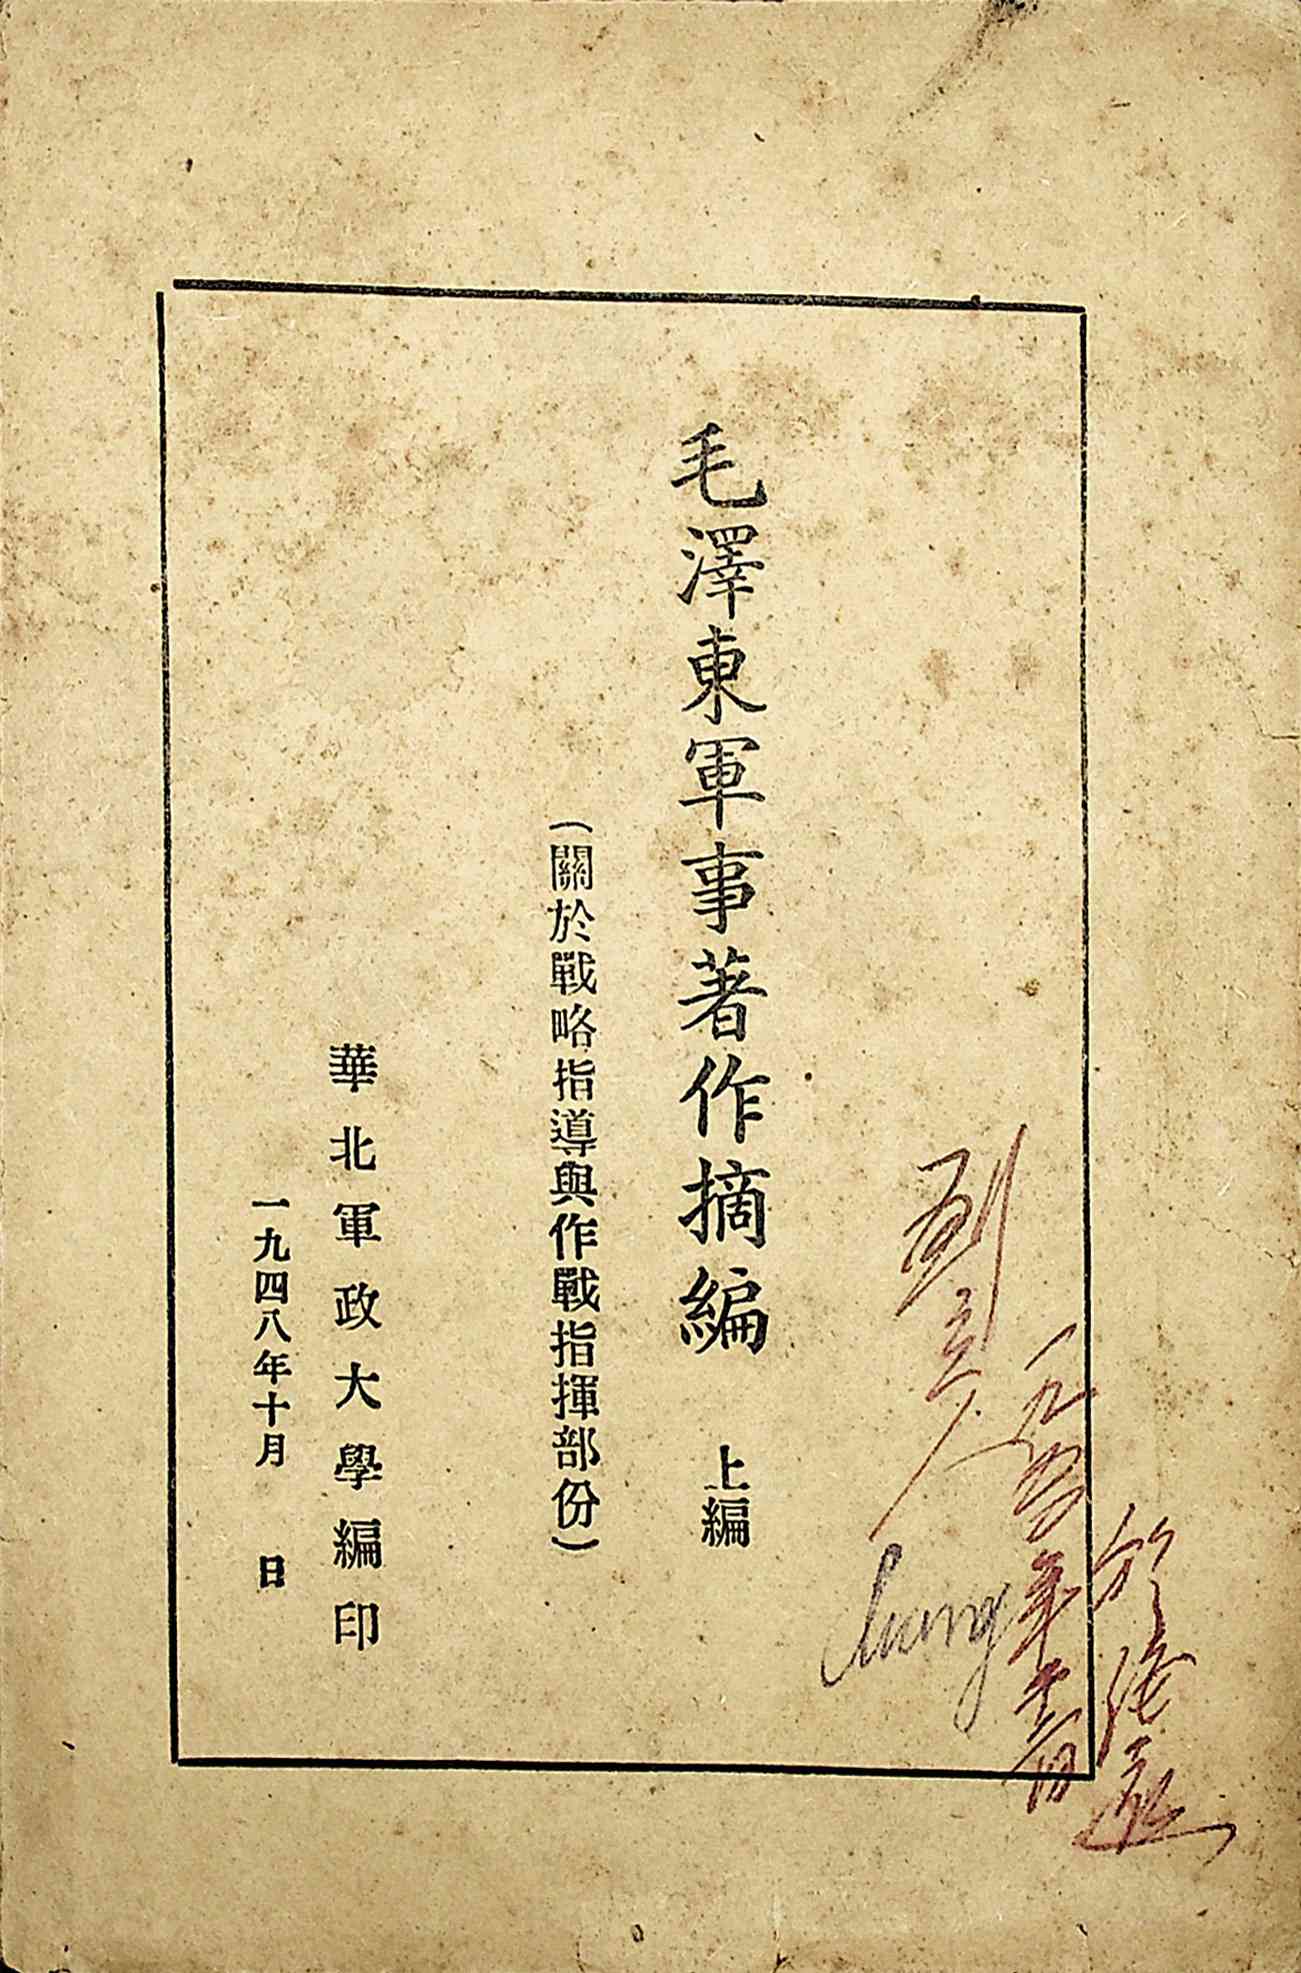 毛澤東軍事著作摘編 上編
(關於戰略指導與作戰指揮部份)
華北軍政大學編印
一九四八年十月 日